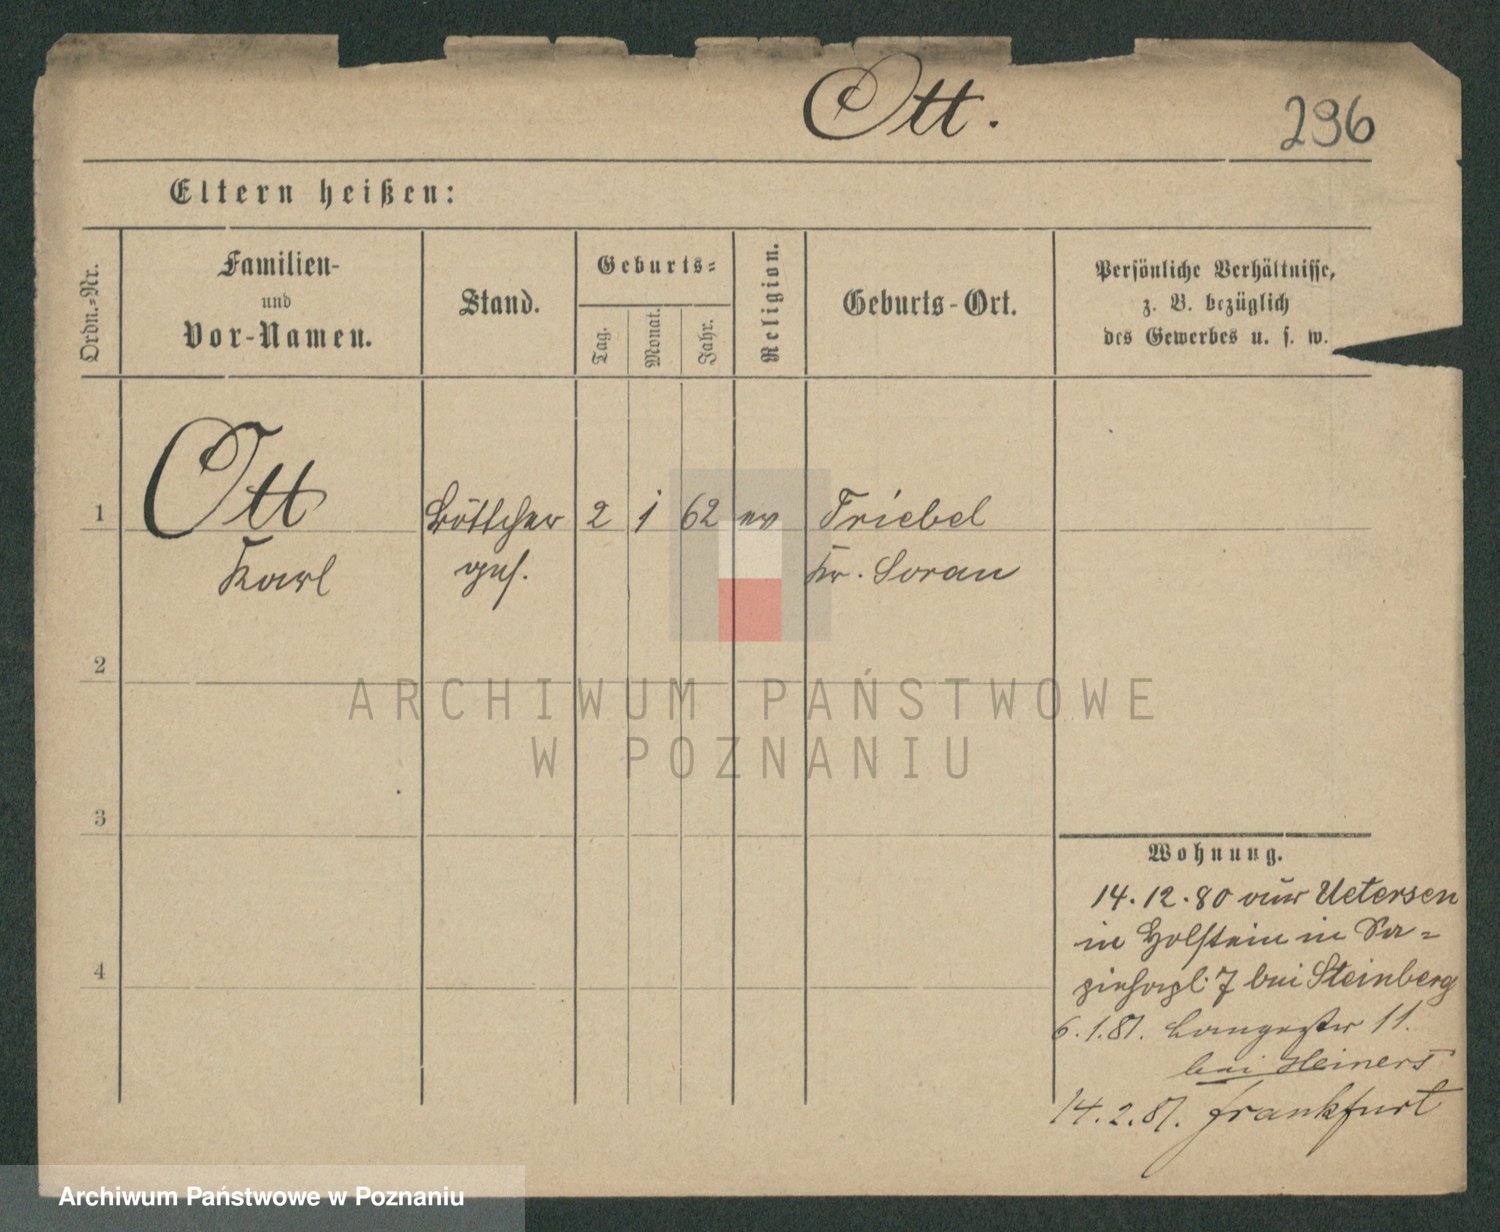 Ott.
296
Eltern heißen:
Ordn.=Nr.
Familien-
und
Vor-Namen.
Stand.
Geburts=
Tag.
Monat.
Jahr.
Religion.
Geburts-Ort.
Persönliche Verhältnisse,
z. B. bezüglich
des Gewerbes u. s. w.
1 Ott Böttcher 2 1 62 ev Triebel
Karl ges. Kr. Sorau
2
ARCHIWUM PAŃSTWOWE
W POZNANIU
3
Wohnung.
14.12.80 aus Uetersen
in Holstein in Sa=
4
piehapl: 7 bei Steinberg
6.1.81. Langestr 11.
bei Heiners
14.2.81. Frankfurt
Archiwum Państwowe w Poznaniu